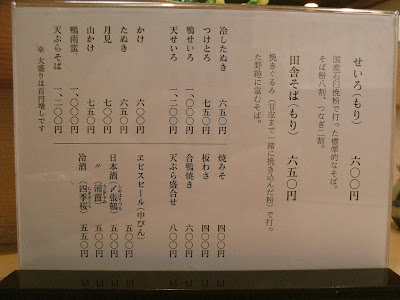 せいろ（もり） 六〇〇円
国産石臼挽粉で打った標準的なそば。
そば粉八割、つなぎ二割。
田舎そば（もり） 六五〇円
挽きぐるみ（甘皮まで一緒に挽き込んだ粉）で打っ
た野趣に富むそば。
冷したぬき 六五〇円
つけとろ 七五〇円
鴨せいろ 一、〇〇〇円
天せいろ 一、二〇〇円
かけ 六〇〇円
たぬき 六五〇円
月見 七〇〇円
山かけ 七五〇円
鴨南蛮 一、〇〇〇円
天ぷらそば 一、二〇〇円
※大盛りは百円増しです
焼みそ 四〇〇円
板わさ 四〇〇円
合鴨焼き 六〇〇円
天ぷら盛合せ 八〇〇円
ヱビスビール（中びん） 五〇〇円
日本酒（〆張鶴） 五五〇円
〃（浦霞） 五五〇円
冷酒（四季桜） 五五〇円